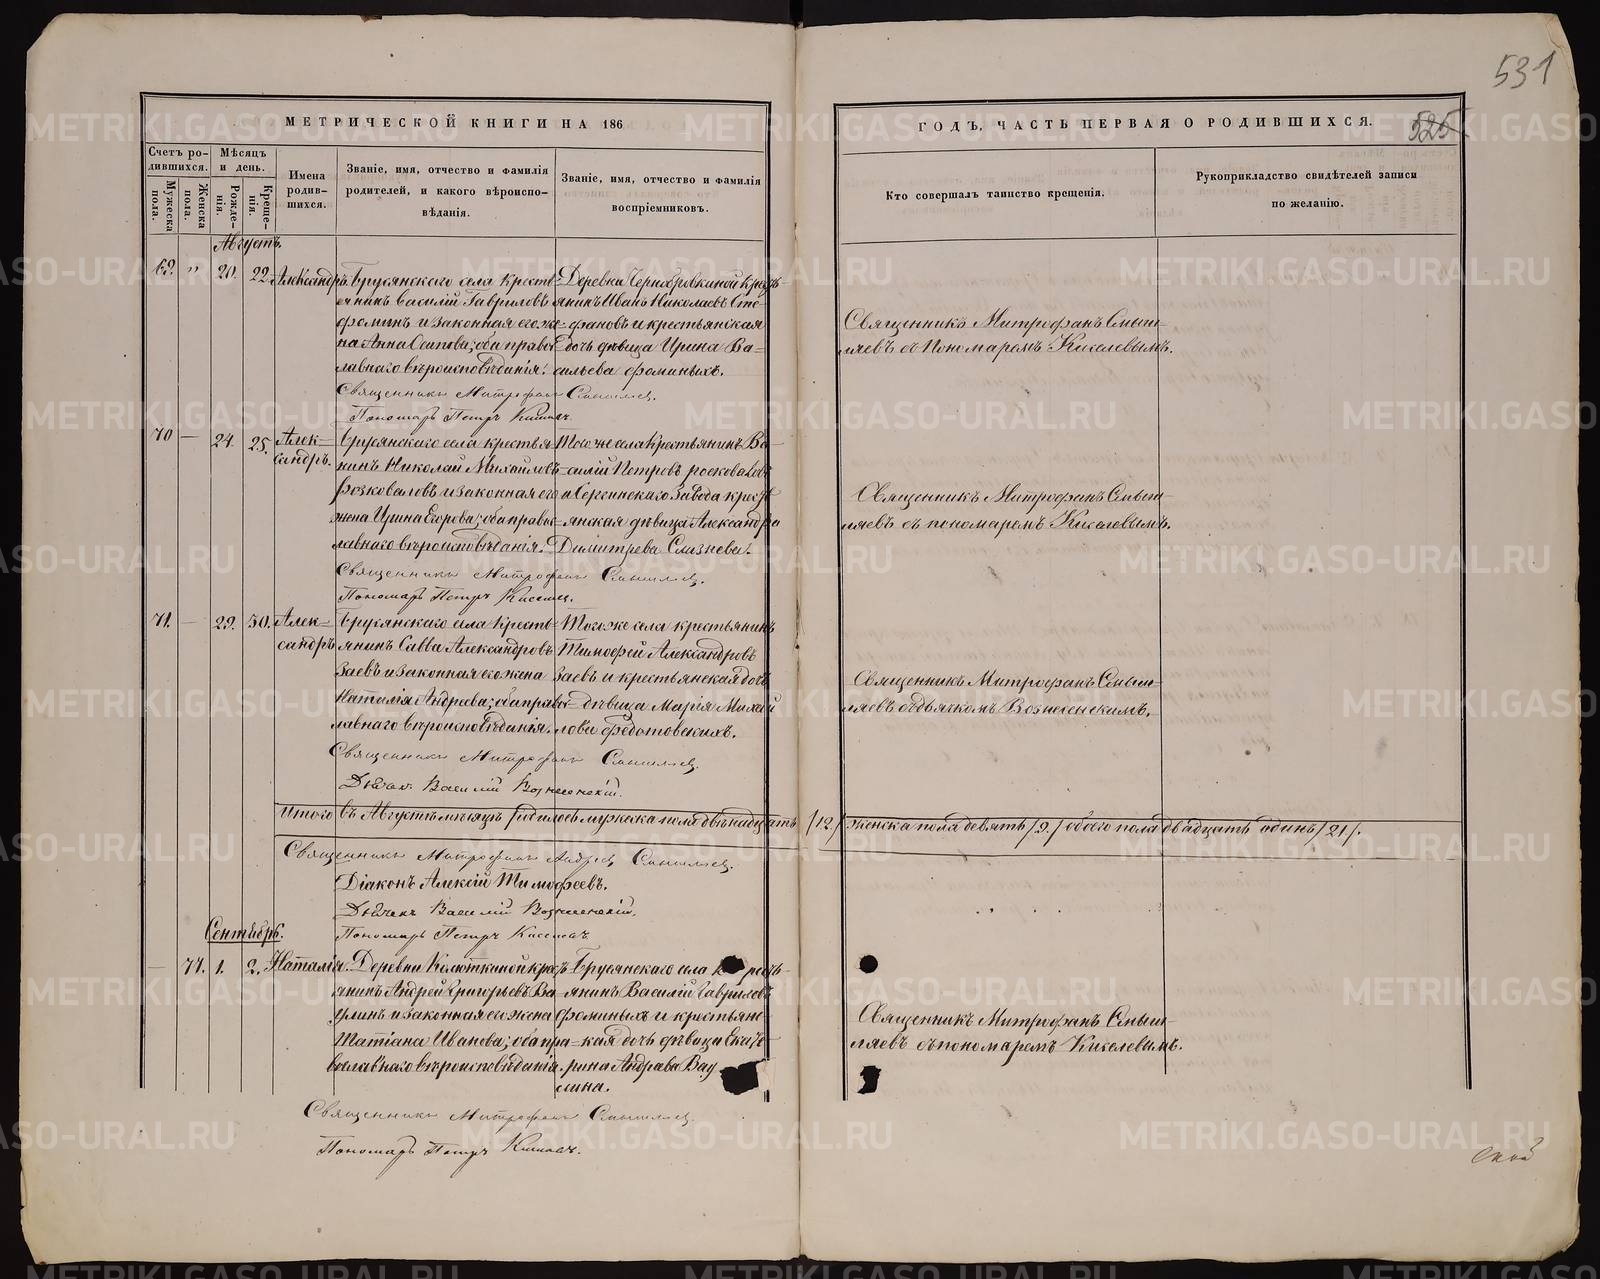 531
МЕТРИЧЕСКОЙ КНИГИ НА 186
ГОДЪ, ЧАСТЬ ПЕРВАЯ О РОДИВШИХСЯ.
525
Счетъ родившихся.
Мужеска пола.
Женска пола.
Мѣсяцъ и день.
Рожденія.
Крещенія.
Имена родившихся.
Званіе, имя, отчество и фамилія родителей, и какого вѣроисповѣданія.
Званіе, имя, отчество и фамилія воспріемниковъ.
Кто совершалъ таинство крещенія.
Рукоприкладство свидѣтелей записи по желанію.
Августъ.
69. " 20. 22. Александръ.
Брусянскаго села кресть-
янинъ Василій Гавриловъ
Фоминъ и законная его же-
на Анна Осипова; оба православнаго вѣроисповѣданія.
Деревни Чернобровкиной кресть-
янинъ Иванъ Николаевъ Сте-
фановъ и крестьянская
дочь дѣвица Ирина Ва-
сильева Фоминыхъ.
Священникъ Митрофанъ Смыш-
ляевъ съ Пономаремъ Киселевымъ.
Священникъ Митрофанъ Смышляевъ.
Пономарь Петръ Киселевъ.
70 — 24. 25. Алек-
сандръ.
Брусянскаго села крестья-
нинъ Николай Михайловъ
Розковаловъ и законная его
жена Ирина Егорова; оба православнаго вѣроисповѣданія.
Того же села Крестьянинъ Ва-
силій Петровъ Росковаловъ
и Сергинскаго Завода кресть-
янская дѣвица Александра
Димитрева Слизнева.
Священникъ Митрофанъ Смыш-
ляевъ съ пономаремъ Киселевымъ.
Священникъ Митрофанъ Смышляевъ.
Пономарь Петръ Киселевъ.
71. — 29. 30. Алек-
сандръ
Брусянскаго села кресть-
янинъ Савва Александровъ
Заевъ и законная его жена
Наталія Андреева; оба православнаго вѣроисповѣданія.
Того же села крестьянинъ
Тимофей Александровъ
Заевъ и крестьянская дочь
дѣвица Марія Михай-
лова Федотовскихъ.
Священникъ Митрофанъ Смыш-
ляевъ съ дьячкомъ Вознесенскимъ.
Священникъ Митрофанъ Смышляевъ.
Дьячекъ Василій Вознесенскій.
Итого въ Августѣ мѣсяцѣ родилось мужеска пола двѣнадцать /12/ женска пола девять /9/ обоего пола двадцать одинъ /21/.
Священникъ Митрофанъ Андреевъ Смышляевъ.
Діаконъ Алексій Тимофеевъ.
Дьячекъ Василій Вознесенскій.
Пономарь Петръ Киселевъ
Сентябрь.
— 77. 1. 2. Наталія.
Деревни Колюткиной кресть-
янинъ Андрей Григорьевъ Ва-
улинъ и законная его жена
Татіана Иванова; оба пра-
вославнаго вѣроисповѣданія.
Брусянскаго села кресть-
янинъ Василій Гавриловъ
Фоминыхъ и крестьян-
ская дочь дѣвица Екате-
рина Андреева Вау
лина.
Священникъ Митрофанъ Смыш-
ляевъ съ пономаремъ Киселевымъ.
Священникъ Митрофанъ Смышляевъ.
Пономарь Петръ Киселевъ.
METRIKI.GASO-URAL.RU